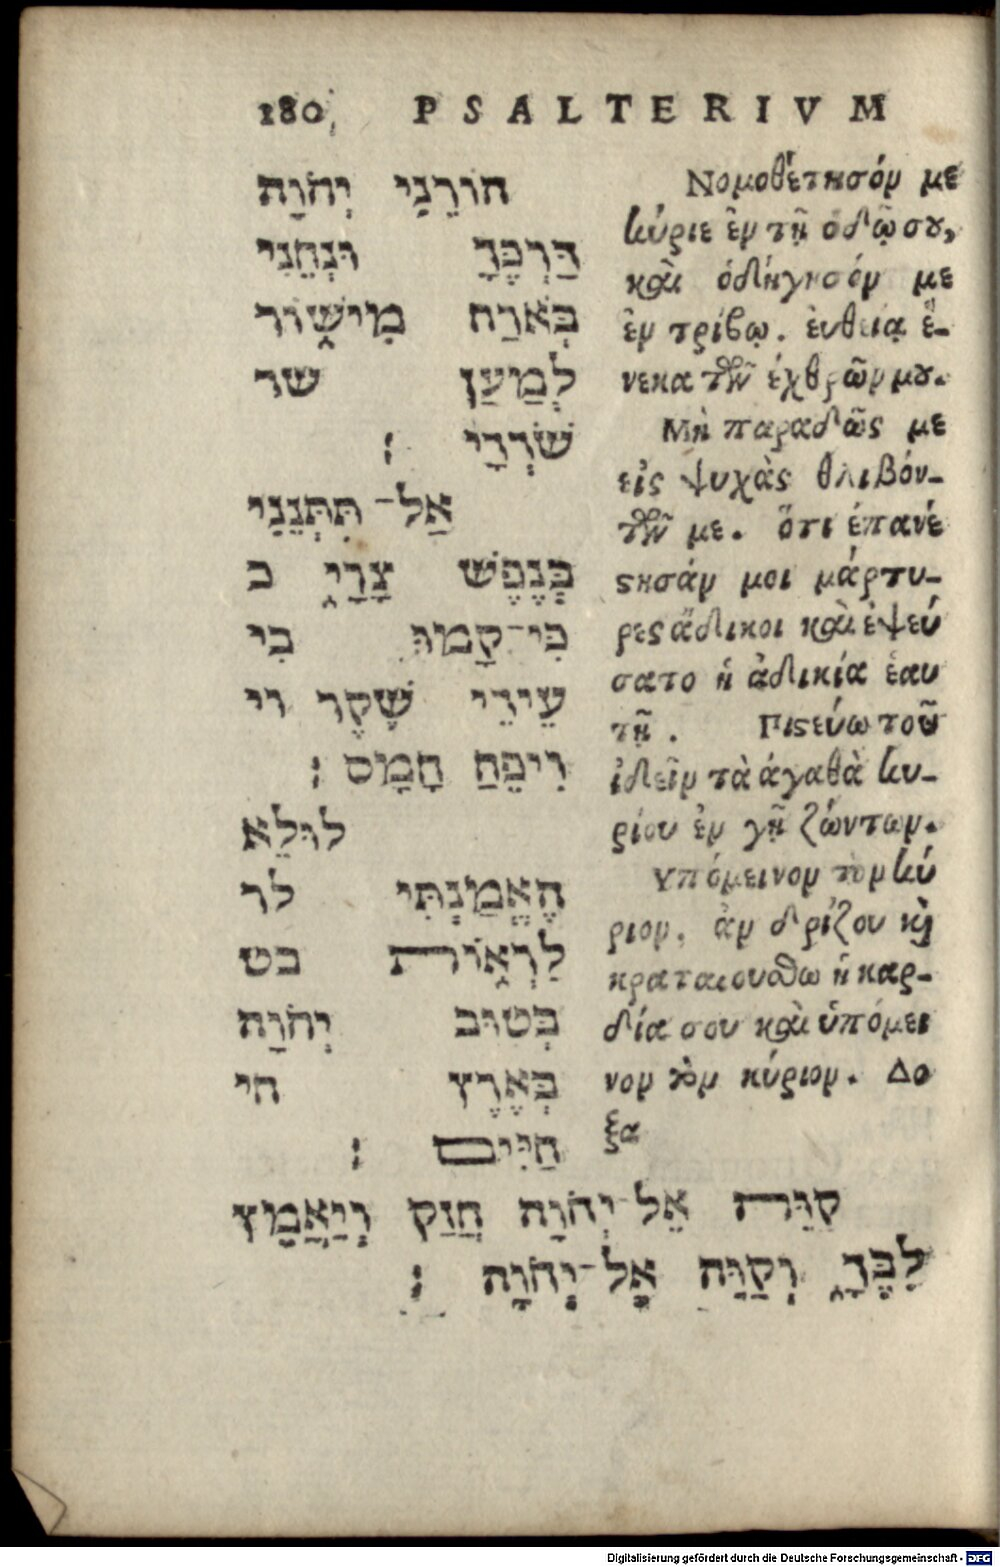 180, PSALTERIVM
הוֹרֵנִי יְהֹוָה
דַּרְכֶּךָ וּנְחֵנִי
בְּאֹרַח מִישׁוֹר
לְמַעַן שר
שֹׁרְרָי ׃
אַל־תִּתְּנֵנִי
בְּנֶפֶשׁ צָרָי כ
כִּי־קָמוּ בִי
עֵידֵי שֶׁקֶר וי
וִיפֵחַ חָמָס ׃
לוּלֵא
הֶאֱמַנְתִּי לר
לִרְאוֹת בט
בְּטוּב יְהֹוָה
בְּאֶרֶץ חי
חַיִּים ׃
קַוֵּה אֶל־יְהֹוָה חֲזַק וְיַאֲמֵץ
לִבֶּךָ וְקַוֵּה אֶל־יְהֹוָה ׃
Νομοθέτησόν με
κύριε ἐν τῇ ὁδῷ σου,
καὶ ὁδήγησόν με
ἐν τρίβῳ. ἐυθείᾳ ἕ-
νεκα τῶν ἐχθρῶν μου.
Μὴ παραδῶς με
εἰς ψυχὰς θλιβόν-
των με. ὅτι ἐπανέ
ςησάν μοι μάρτυ-
ρες ἄδικοι καὶ ἐψεύ
σατο ἡ ἀδικία ἑαυ
τῇ. Πιςεύω τοῦ
ἰδεῖν τὰ ἀγαθὰ κυ-
ρίου ἐν γῇ ζώντων.
Υπόμεινον τὸν κύ
ριον, ἀνδρίζου κὶ
κραταιούσθω ἡ καρ-
δία σου καὶ ὑπόμει
νον τὸν κύριον. Δο
ξα
Digitalisierung gefördert durch die Deutsche Forschungsgemeinschaft - DFG